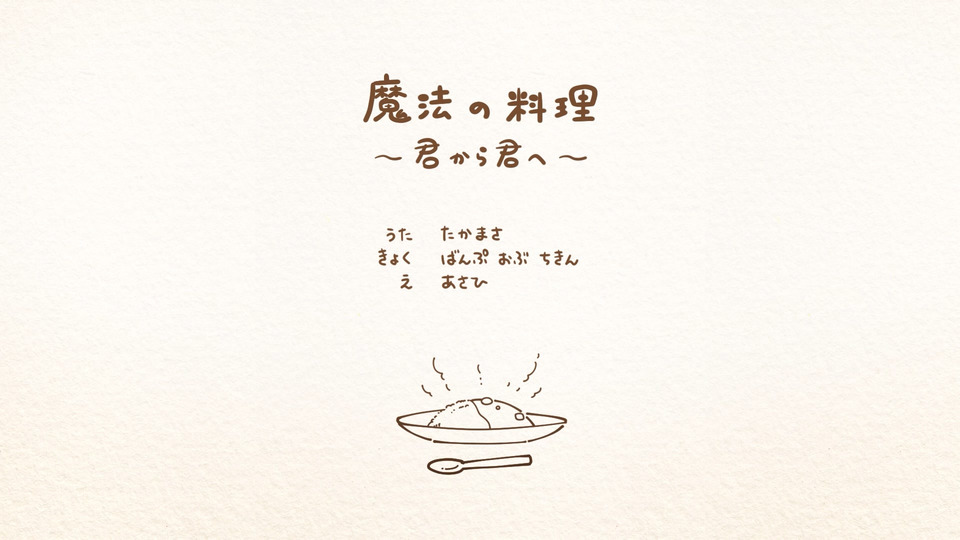 魔法の料理
〜君から君へ〜
うた たかまさ
きょく ばんぷ おぶ ちきん
え あさひ